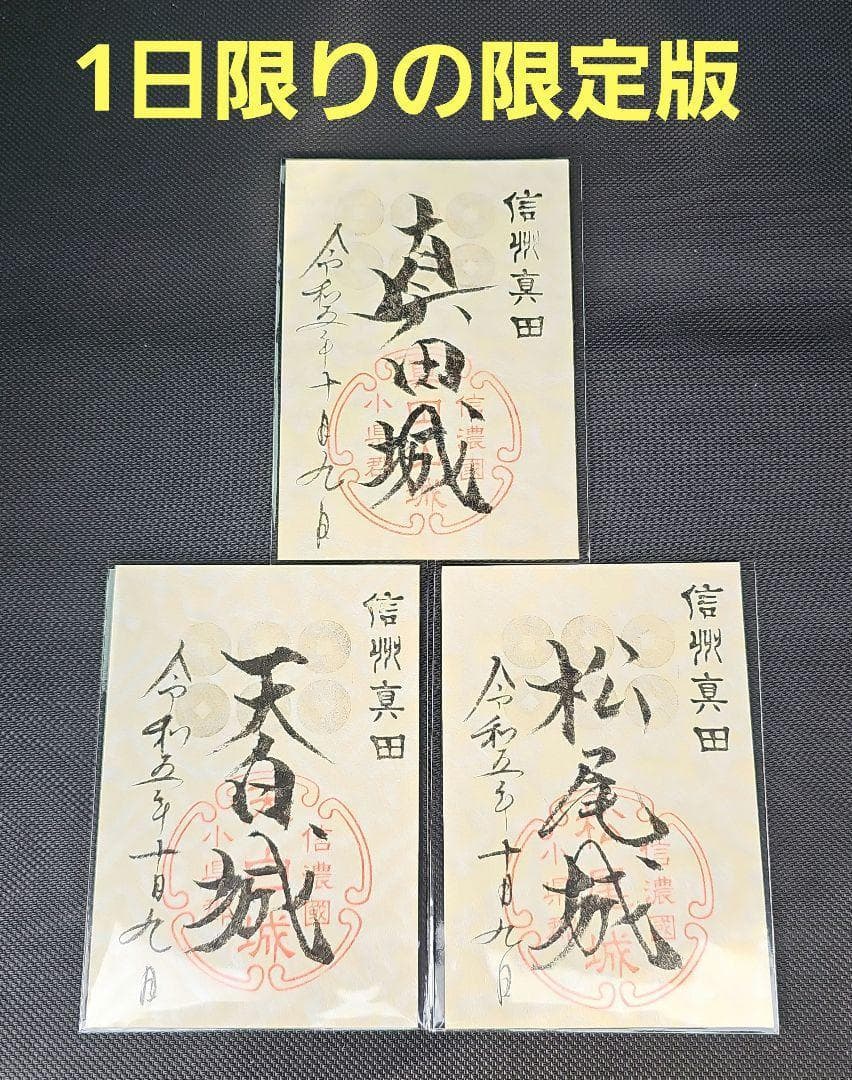 1日限りの限定版
信州真田
真田城
令和五年十月九日
信濃國
小県郡
信州真田
天白城
令和五年十月九日
信濃國
小県郡
天白城
信州真田
松尾城
令和五年十月九日
信濃國
小県郡
松尾城